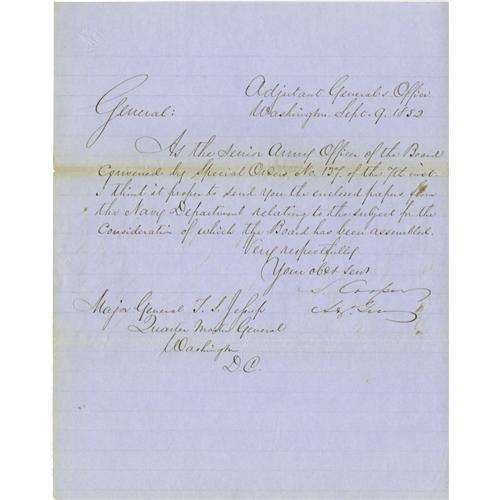 Adjutant General's Office
Washington Sept. 9. 1852
General:
As the Senior Army Officer of the Board
Convened by Special Orders No. 137. of the 7th inst.
I think it proper to send you the enclosed papers from
the Navy Department relating to the subject for the
Consideration of which the Board has been assembled.
Very respectfully
Your obdt servt
S. Cooper
Major General T. S. Jesup
Quarter Master General
Washington
D.C.